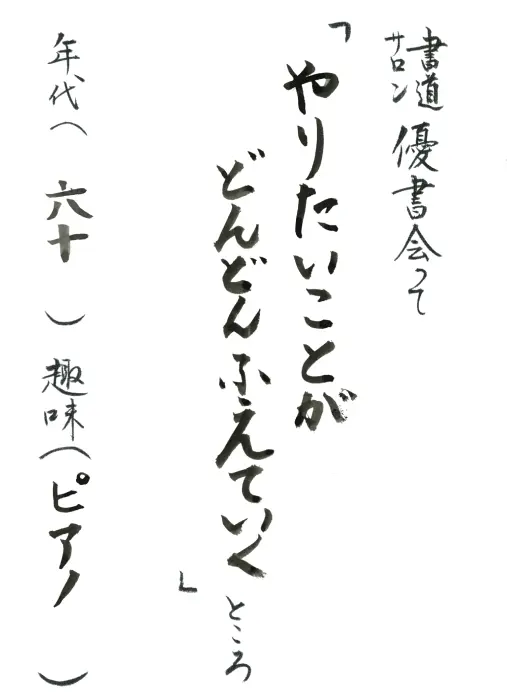 書道サロン 優書会って
「やりたいことが
どんどんふえていく」ところ
年代（ 六十 ） 趣味（ピアノ ）